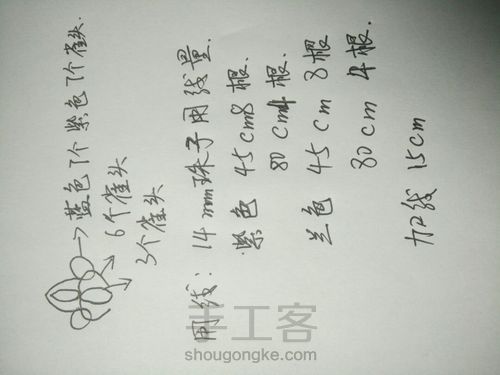 →蓝色7个紫色7个雀头.
6个雀头
3个雀头
用线: 14mm珠子用线量.
紫色 45cm8根.
80cm4根.
兰色 45cm 8根
80cm 4根.
加线 15cm
手工客
shougongke.com